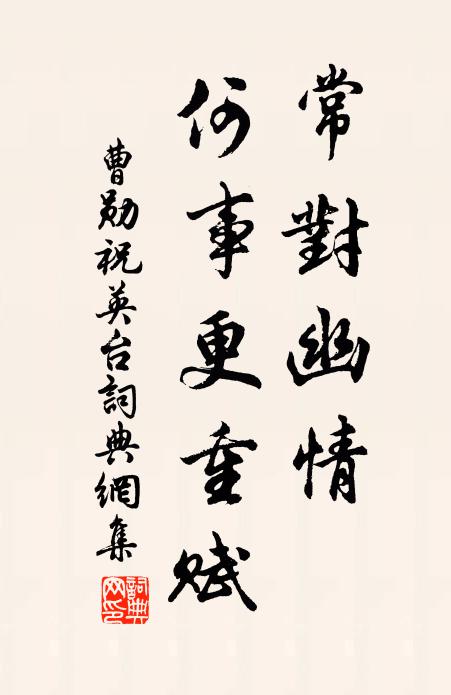 常對幽情
何事更重賦
曹勛祝英台詞典網集
詞典網印